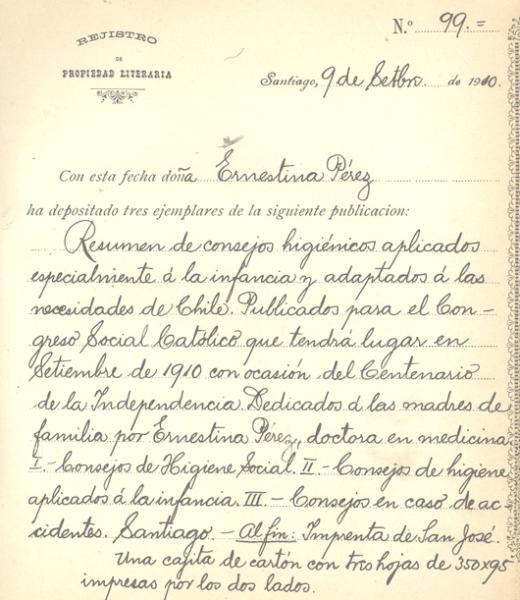 REJISTRO
DE
PROPIEDAD LITERARIA
N.º 99.=
Santiago, 9 de Setbre. de 1910.
Con esta fecha doña Ernestina Pérez
ha depositado tres ejemplares de la siguiente publicacion:
Resumen de consejos higiénicos aplicados
especialmente á la infancia y adaptados á las
necesidades de Chile. Publicados para el Con-
greso Social Católico que tendrá lugar en
Setiembre de 1910 con ocasión del Centenario
de la Independencia. Dedicados á las madres de
familia por Ernestina Pérez, doctora en medicina
I.- Consejos de Higiene Social. II.- Consejos de higiene
aplicados á la infancia. III.- Consejos en caso de ac-
cidentes. Santiago. - Al fin: Imprenta de San José.
Una cajita de cartón con tres hojas de 350x95
impresas por los dos lados.